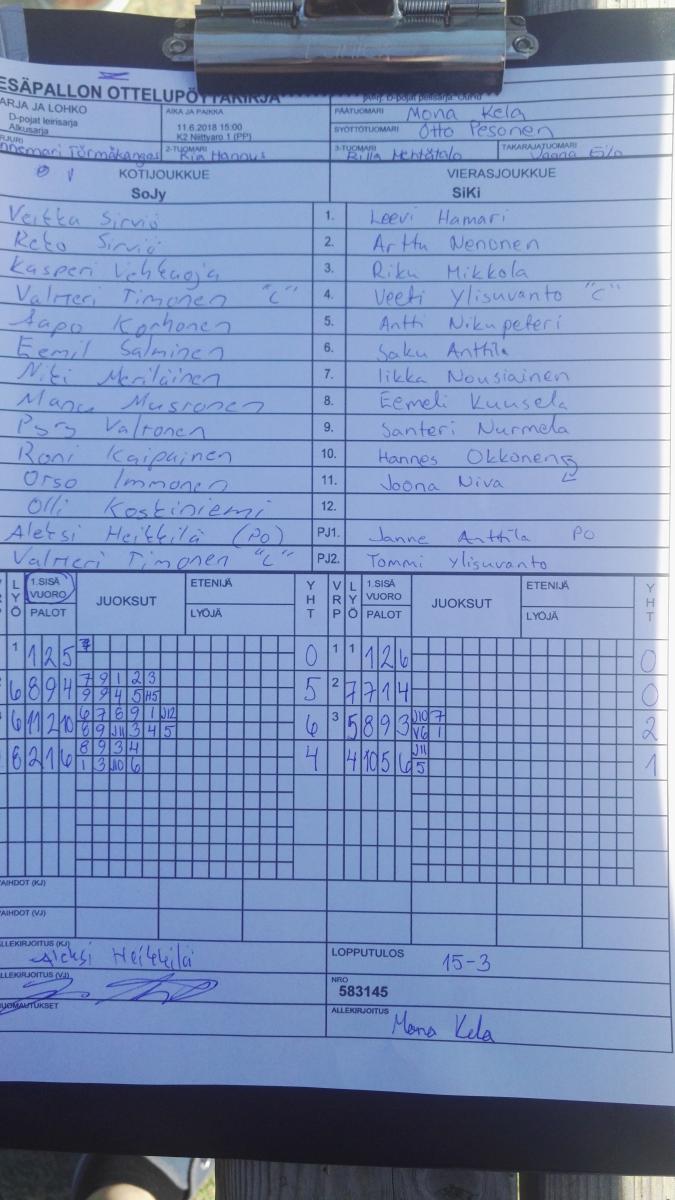 ESÄPALLON OTTELUPÖYTÄKIRJA
ARJA JA LOHKO
D-pojat leirisarja
Alkusarja
AIKA JA PAIKKA
11.6.2018 15:00
K2 Niittyaro 1 (PP)
PÄÄTUOMARI Mona Kela
SYÖTTÖTUOMARI Otto Pesonen
RJURI
nnemari Törmäkangas
2-TUOMARI Kia Hannus
3-TUOMARI Riila Mehtätalo
TAKARAJATUOMARI
KOTIJOUKKUE VIERASJOUKKUE
SoJy SiKi
Veikka Sirviö 1. Leevi Hamari
Reko Sirviö 2. Arttu Nenonen
Kasperi Vehkaoja 3. Riku Mikkola
Valtteri Timonen "C" 4. Veeti Ylisuvanto "C"
Aapo Korhonen 5. Antti Nikupeteri
Eemil Salminen 6. Saku Anttila
Niki Meriläinen 7. Iikka Nousiainen
Manu Mustonen 8. Eemeli Kuusela
Pyry Valtonen 9. Santeri Nurmela
Roni Kaipainen 10. Hannes Okkonen
Orso Immonen 11. Joona Niva
Olli Koskiniemi 12.
Aleksi Heikkilä (PO) PJ1. Janne Anttila PO
Valtteri Timonen "C" PJ2. Tommi Ylisuvanto
LYÖ 1.SISÄ VUORO PALOT JUOKSUT ETENIJÄ LYÖJÄ YHT VRP LYÖ 1.SISÄ VUORO PALOT JUOKSUT ETENIJÄ LYÖJÄ YHT
1 1 2 5 0 1 1 1 2 6 0
6 8 9 4 7 9 1 2 3 5 2 7 7 1 4 0
9 9 4 5 H5
6 11 2 10 6 7 8 9 1 J12 6 3 5 8 9 3 J10 7 2
8 9 J11 3 4 5 V6 1
8 2 1 6 8 9 3 4 4 4 10 5 6 J11 1
1 3 J10 6 5
AIHDOT (KJ)
AIHDOT (VJ)
ALLEKIRJOITUS (KJ)
Aleksi Heikkilä
LOPPUTULOS 15-3
ALLEKIRJOITUS (VJ)
NRO
583145
HUOMAUTUKSET
ALLEKIRJOITUS
Mona Kela